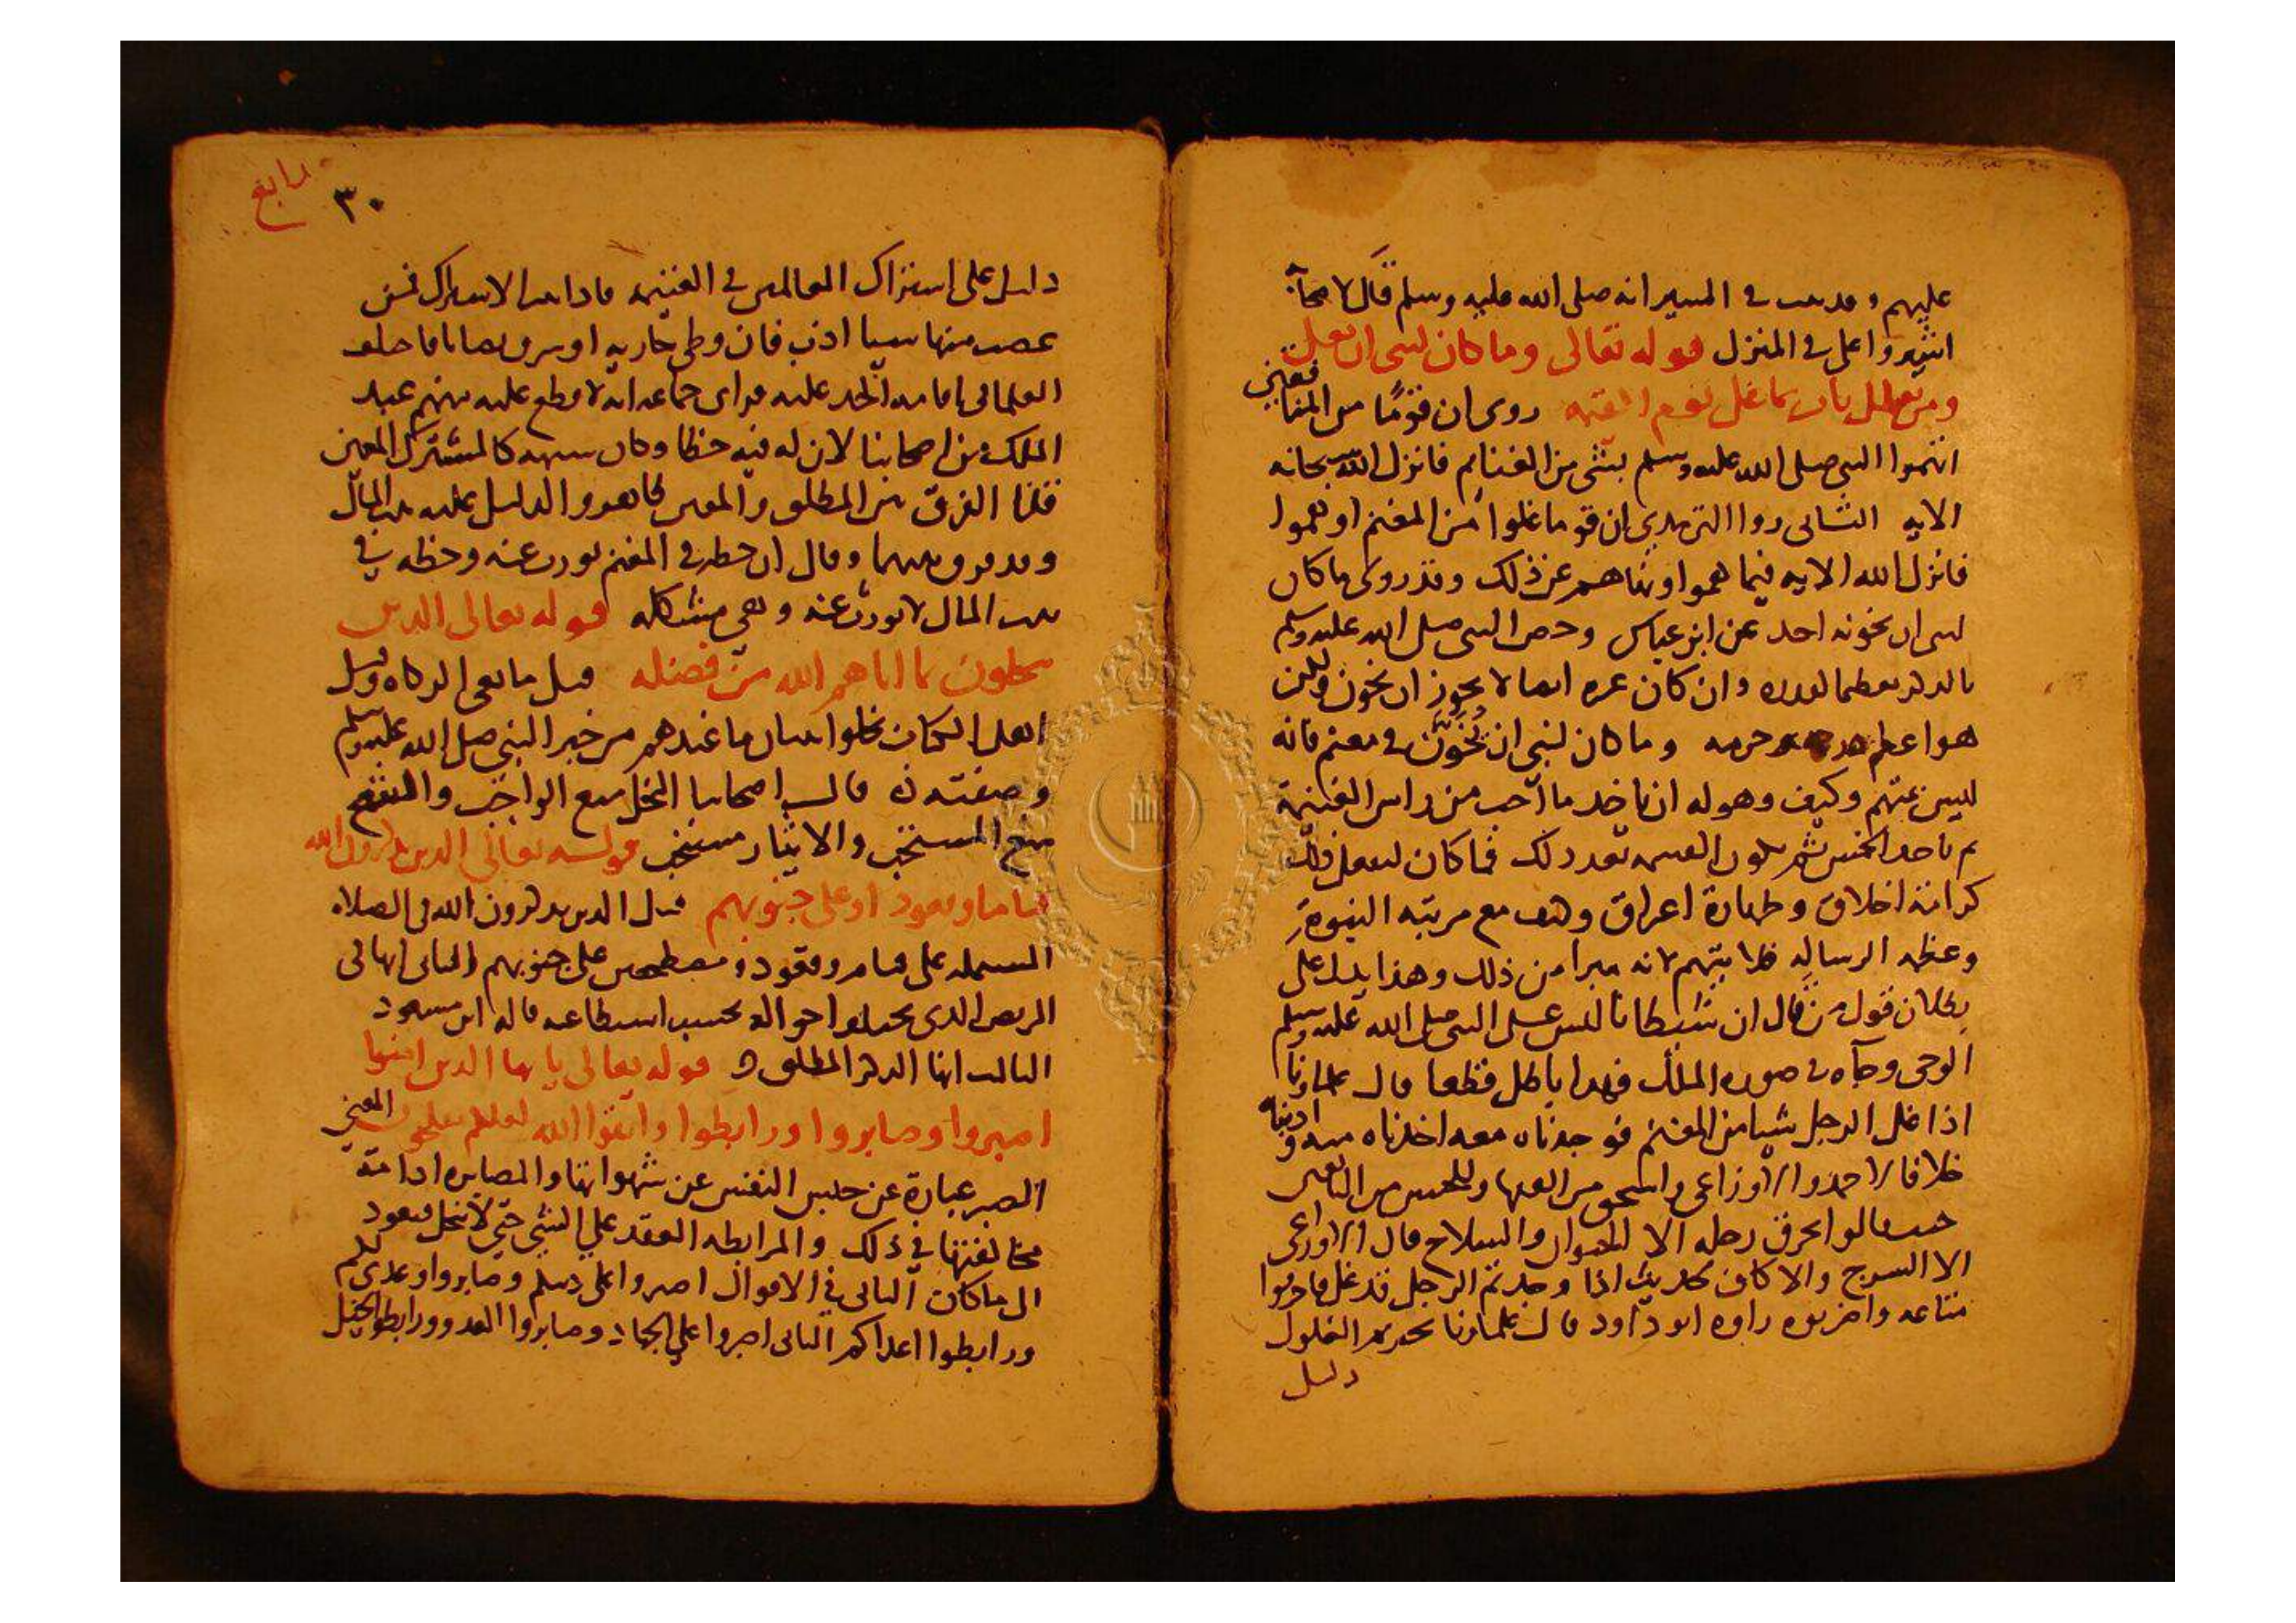 عليهم وقد ثبت في السير انه صلى الله عليه وسلم قال لاصحابه
اشيروا علي في المنزل قوله تعالى وما كان لنبي ان يغل
ومن يغلل يات بما غل يوم القيمه روى ان قومًا من المنافقين
اتهموا النبي صلى الله عليه وسلم بشي من الغنايم فانزل الله سبحانه
الايه الثاني روا الترمدي ان قوما غلوا من المغنم او هموا
فانزل الله الايه فيما هموا ونهاهم عن ذلك وقد روى ما كان
لنبي ان يخونه احد عن ابن عباس وخص النبي صلى الله عليه وسلم
بالذكر تعظيما لقدره وان كان غيره ايضا لا يجوز ان يخون ولكن
هو اعظم حرمه وما كان لنبي ان يُخَوَّن في مغنم فانه
ليس يتهم وكيف وهو له ان ياخد ما احب من راس الغنيمة
ثم ياخد الخمس ثم يكون القسمه بعد ذلك فما كان ليفعل ذلك
كرامة اخلاق وطهارة اعراق وكيف مع مرتبه النبوة
وعظمه الرساله فلا يتهم لانه مبرا من ذلك وهذا يدل على
بطلان قول من قال ان شيطانا لبس على النبي صلى الله عليه وسلم
الوحى وجاه في صوره الملك فهدا باطل قطعا قال علماونا
اذا غل الرجل شيا من المغنم فوجدناه معه اخذناه منه وادبناه
خلافا لاحمد والاوزاعي واسحق من الفقها وللحسن من التابعين
حيث قالوا يحرق رحله الا الحيوان والسلاح قال الاوزاعي
الا السرج والاكاف لحديث اذا وجدتم الرجل قد غل فاحرقوا
متاعه واضربوه راوه ابو داود قال علماونا تحريم الغلول
دليل
رابع
٣٠
دليل على اشتراك الغانمين في الغنيمه فاذا ثبت الاشتراك فمن
غصب منها شيا ادب فان وطي جاريه او سرق نصابا فاختلف
العلما في اقامه الحد عليه فراى جماعه انه لا قطع عليه منهم عبد
الملك من اصحابنا لان له فيه حظا وكان سهمه كالمشترك المعين
قلنا الفرق بين المطلق والمعين ظاهر والدليل عليه بيت المال
وقد فرق بينهما وقال ان حظه في المغنم يورث عنه وحظه في
بيت المال لا يورث عنه وهي مشكله قوله تعالى الدين
يبخلون بما اتاهم الله من فضله قيل مانعي الزكاه وقيل
اهل الكتاب بخلوا ببيان ما عندهم من خبر النبي صلى الله عليه وسلم
وصفته قال اصحابنا البخل منع الواجب والشح
منع المستحب والايثار مستحب قوله تعالى الدين يذكرون الله
قياما وقعودا وعلى جنوبهم قيل الدين يذكرون الله في الصلاه
المشتمله على قيام وقعود ومضطجعين على جنوبهم الثاني انها في
المريض الذي تختلف احواله بحسب استطاعته قاله ابن مسعود
الثالث انها الذكر المطلق قوله تعالى يا ايها الدين امنوا
اصبروا وصابروا ورابطوا واتقوا الله لعلكم تفلحون المعنى
الصبر عبارة عن حبس النفس عن شهواتها والمصابره ادامة
مخالفتها في ذلك والمرابطه العقد على الشي حتى لا ينحل فيعود
الى ما كان الثاني في الاقوال اصبروا على دينكم وصابروا وعدي لكم
ورابطوا اعداكم الثاني اصبروا على الجهاد وصابروا العدو ورابطوا الخيل